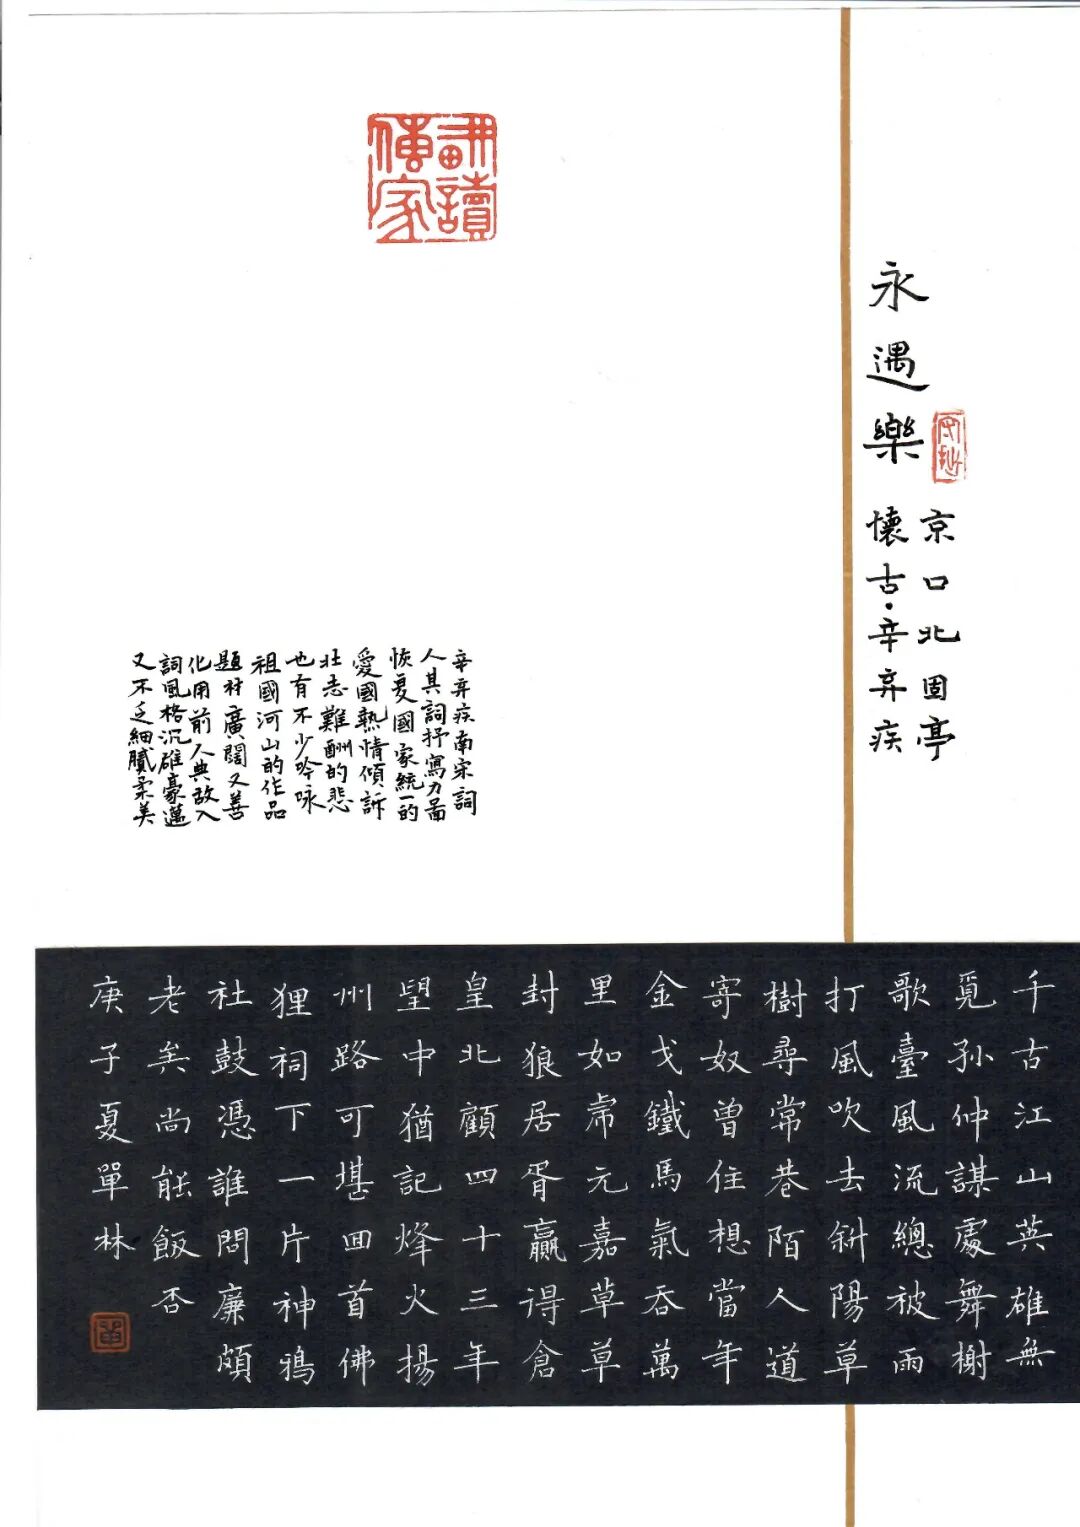 永遇樂
京口北固亭
懷古·辛弃疾
畊讀
傳家
辛弃疾南宋詞
人其詞抒寫力圖
恢复國家統一的
愛國熱情傾訴
壯志難酬的悲
也有不少吟咏
祖國河山的作品
題材廣闊又善
化用前人典故入
詞風格沉雄豪邁
又不乏細膩柔美
千古江山英雄無
覓孫仲謀處舞榭
歌臺風流總被雨
打風吹去斜陽草
樹尋常巷陌人道
寄奴曾住想當年
金戈鐵馬氣吞萬
里如虎元嘉草草
封狼居胥贏得倉
皇北顧四十三年
望中猶記烽火揚
州路可堪回首佛
狸祠下一片神鴉
社鼓憑誰問廉頗
老矣尚能飯否
庚子夏單林